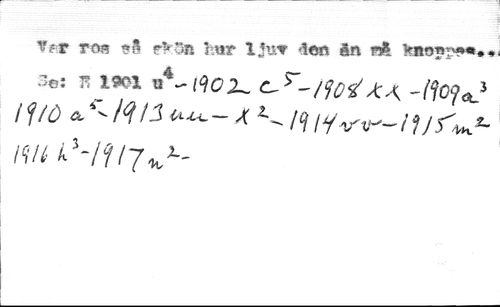 Var ros så skön hur ljuv den än må knoppas...
Se: E 1901 u⁴-1902 c⁵-1908 xx-1909 a³
1910 a⁵-1913 uu-x²-1914 vv-1915 m²
1916 h³-1917 n²-